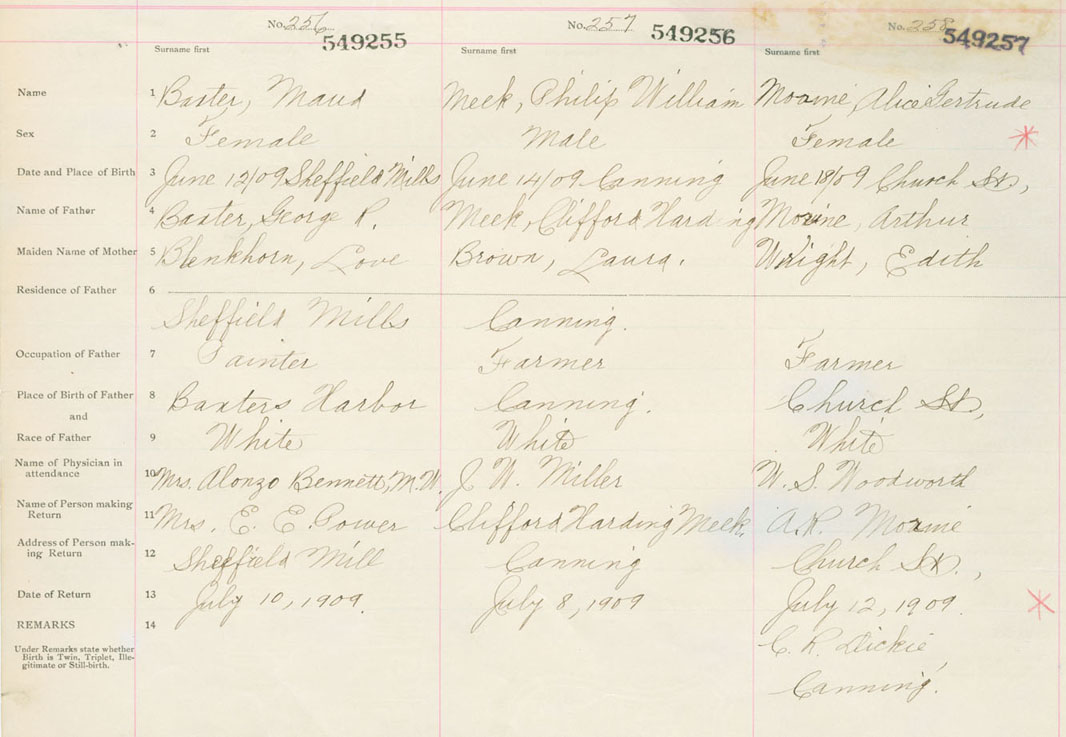 No. 256 No. 257 No. 258
549255 549256 549257
Surname first Surname first Surname first
Name 1 Baxter, Maud Meek, Philip William Morine, Alice Gertrude
Sex 2 Female Male Female
Date and Place of Birth 3 June 12/09 Sheffield Mills June 14/09 Canning June 18/09 Church St.,
Name of Father 4 Baxter, George R. Meek, Clifford Harding Morine, Arthur
Maiden Name of Mother 5 Blenkhorn, Love Brown, Laura. Wright, Edith
Residence of Father 6
Sheffield Mills Canning.
Occupation of Father 7 Painter Farmer Farmer
Place of Birth of Father 8 Baxters Harbor Canning. Church St.,
and
Race of Father 9 White White White
Name of Physician in
attendance 10 Mrs. Alonzo Bennett, M.W. J. W. Miller W. S. Woodworth
Name of Person making
Return 11 Mrs. E. E. Power Clifford Harding Meek. A.R. Morine
Address of Person mak-
ing Return 12 Sheffield Mill Canning Church St.,
Date of Return 13 July 10, 1909. July 8, 1909 July 12, 1909.
REMARKS 14 C. R. Dickie
Under Remarks state whether
Birth is Twin, Triplet, Ille-
gitimate or Still-birth.
Canning.